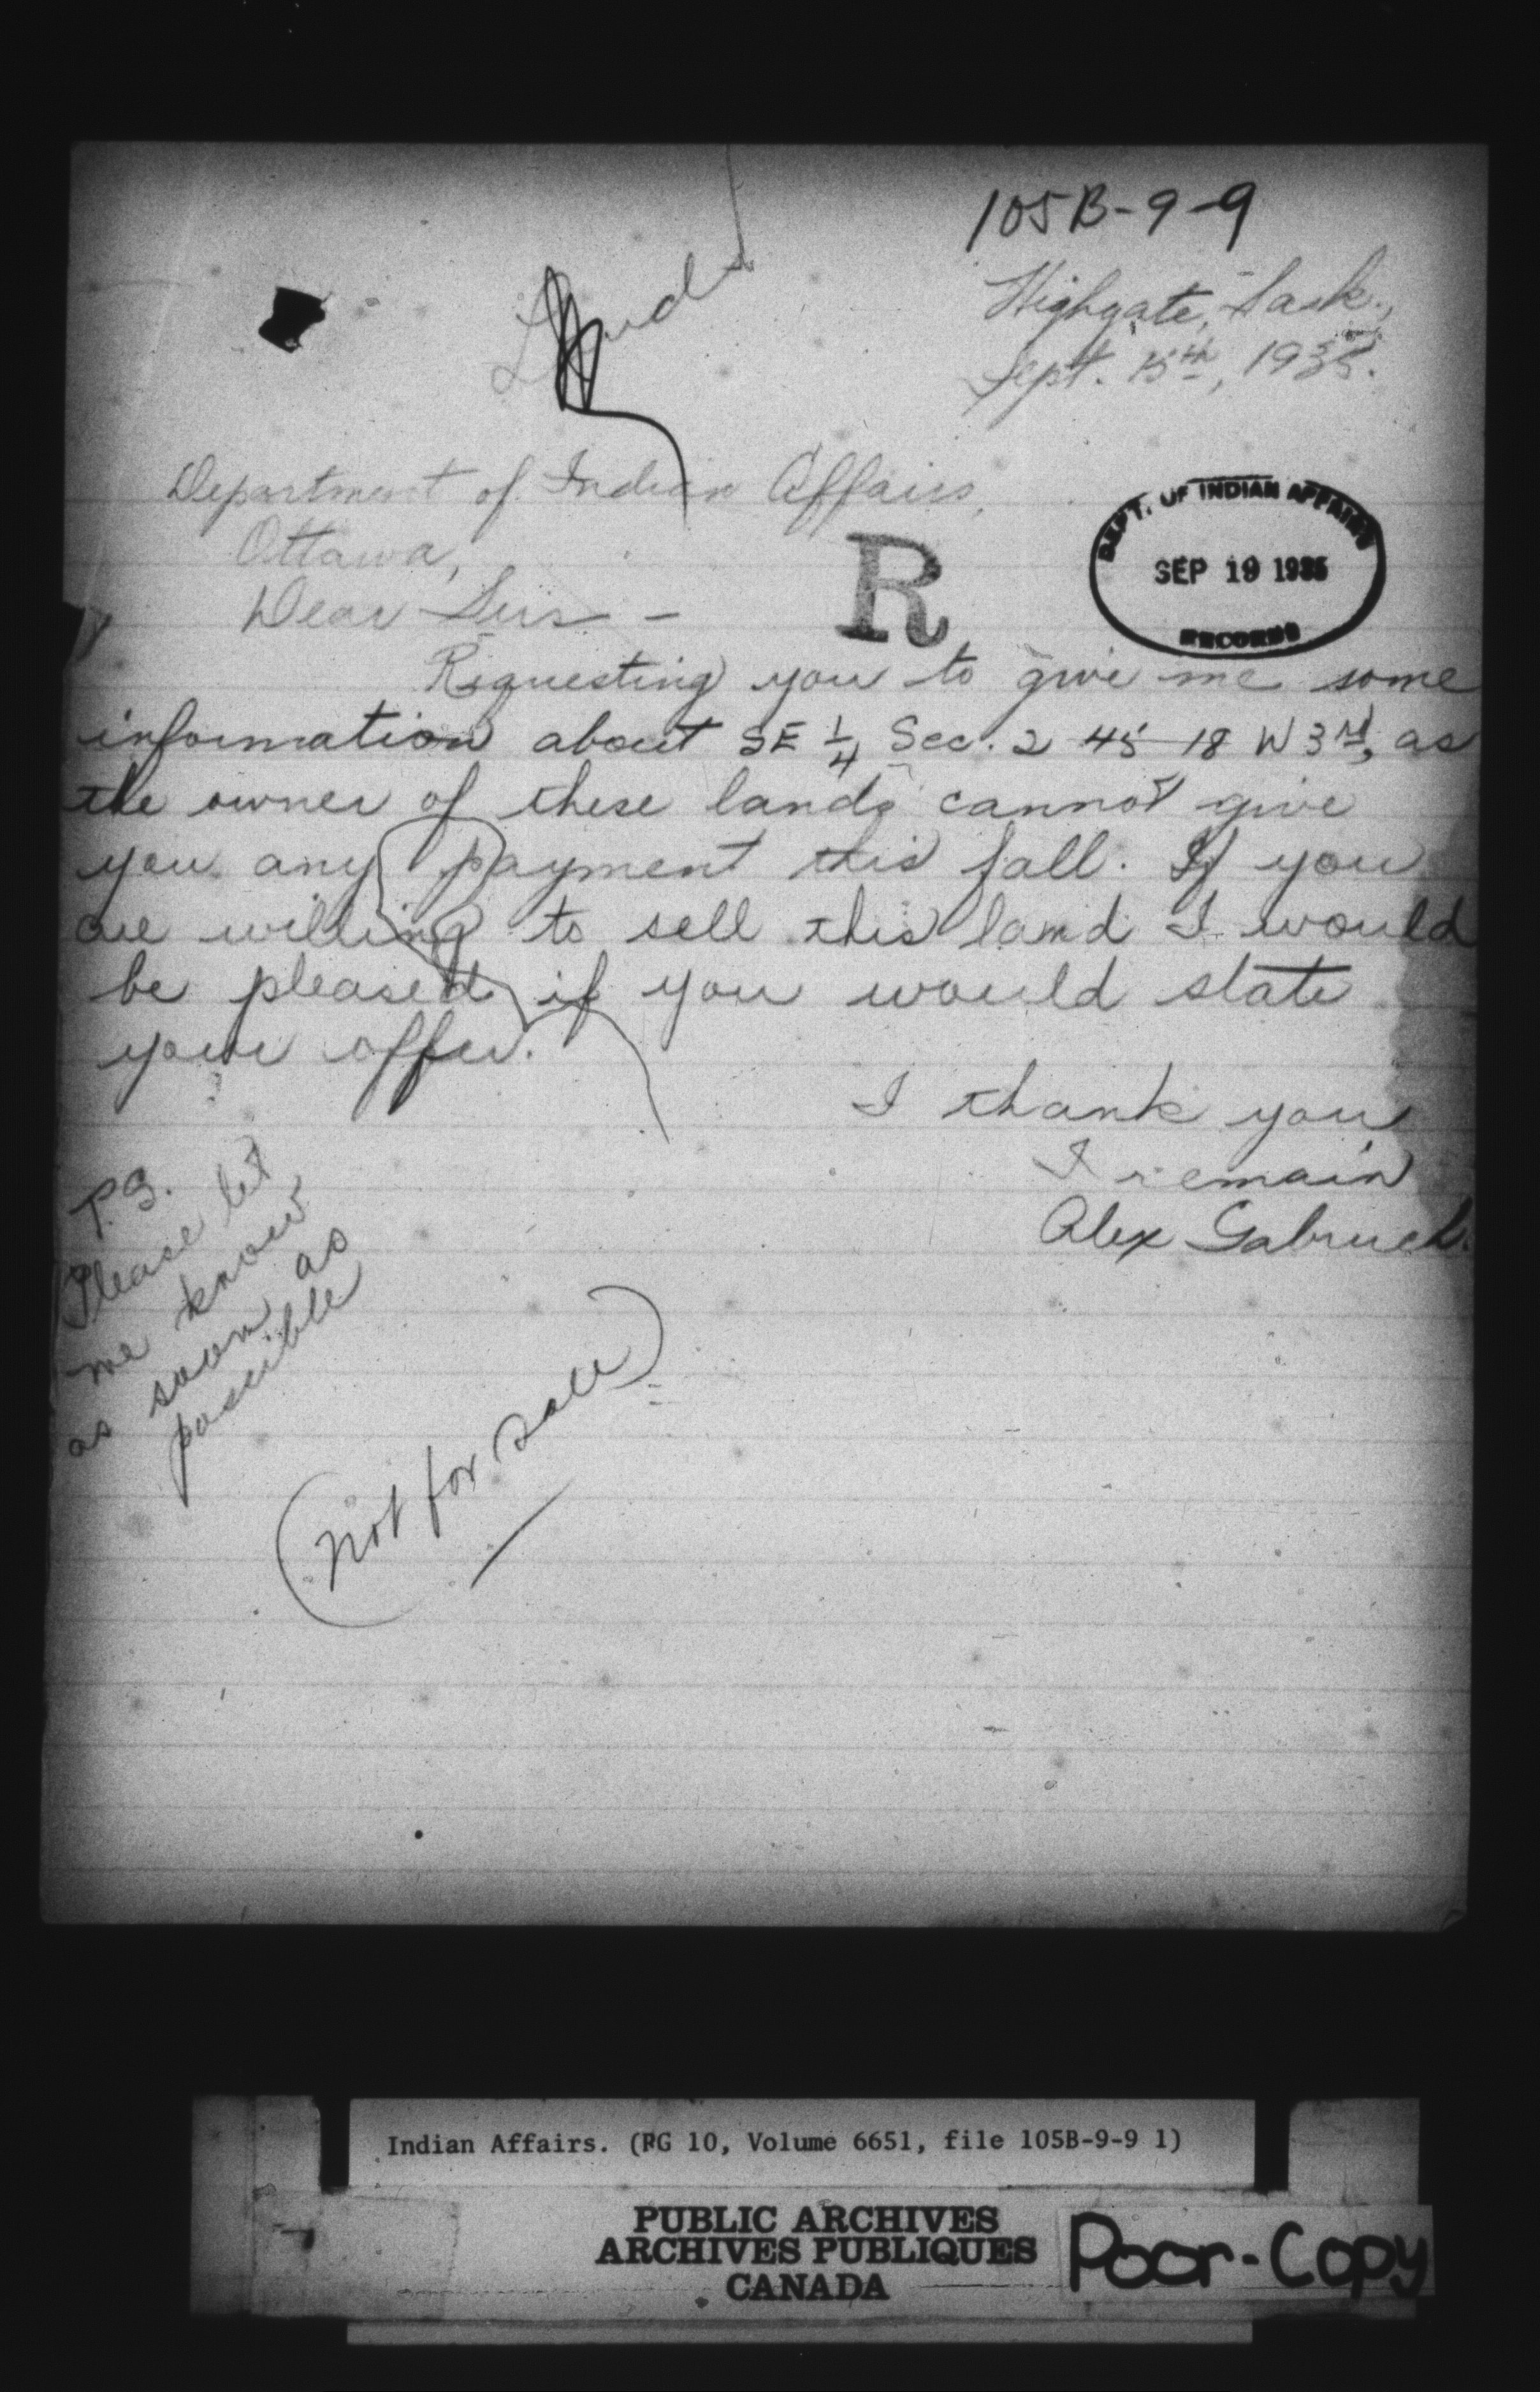 105B-9-9
Highgate, Sask.,
Sept. 15th, 1935.
Department of Indian Affairs,
Ottawa,
Dear Sirs -
R
DEPT. OF INDIAN AFFAIRS
SEP 19 1935
RECORDS
Requesting you to give me some
information about SE 1/4 Sec. 2 45 18 W 3rd, as
the owner of these lands cannot give
you any payment this fall. If you
are willing to sell this land I would
be pleased if you would state
your offer.
I thank you
I remain
Alex Gabruch.
P.S.
Please let
me know
as soon as
possible
(Not for sale)
Indian Affairs. (RG 10, Volume 6651, file 105B-9-9 1)
PUBLIC ARCHIVES
ARCHIVES PUBLIQUES
CANADA
Poor-Copy